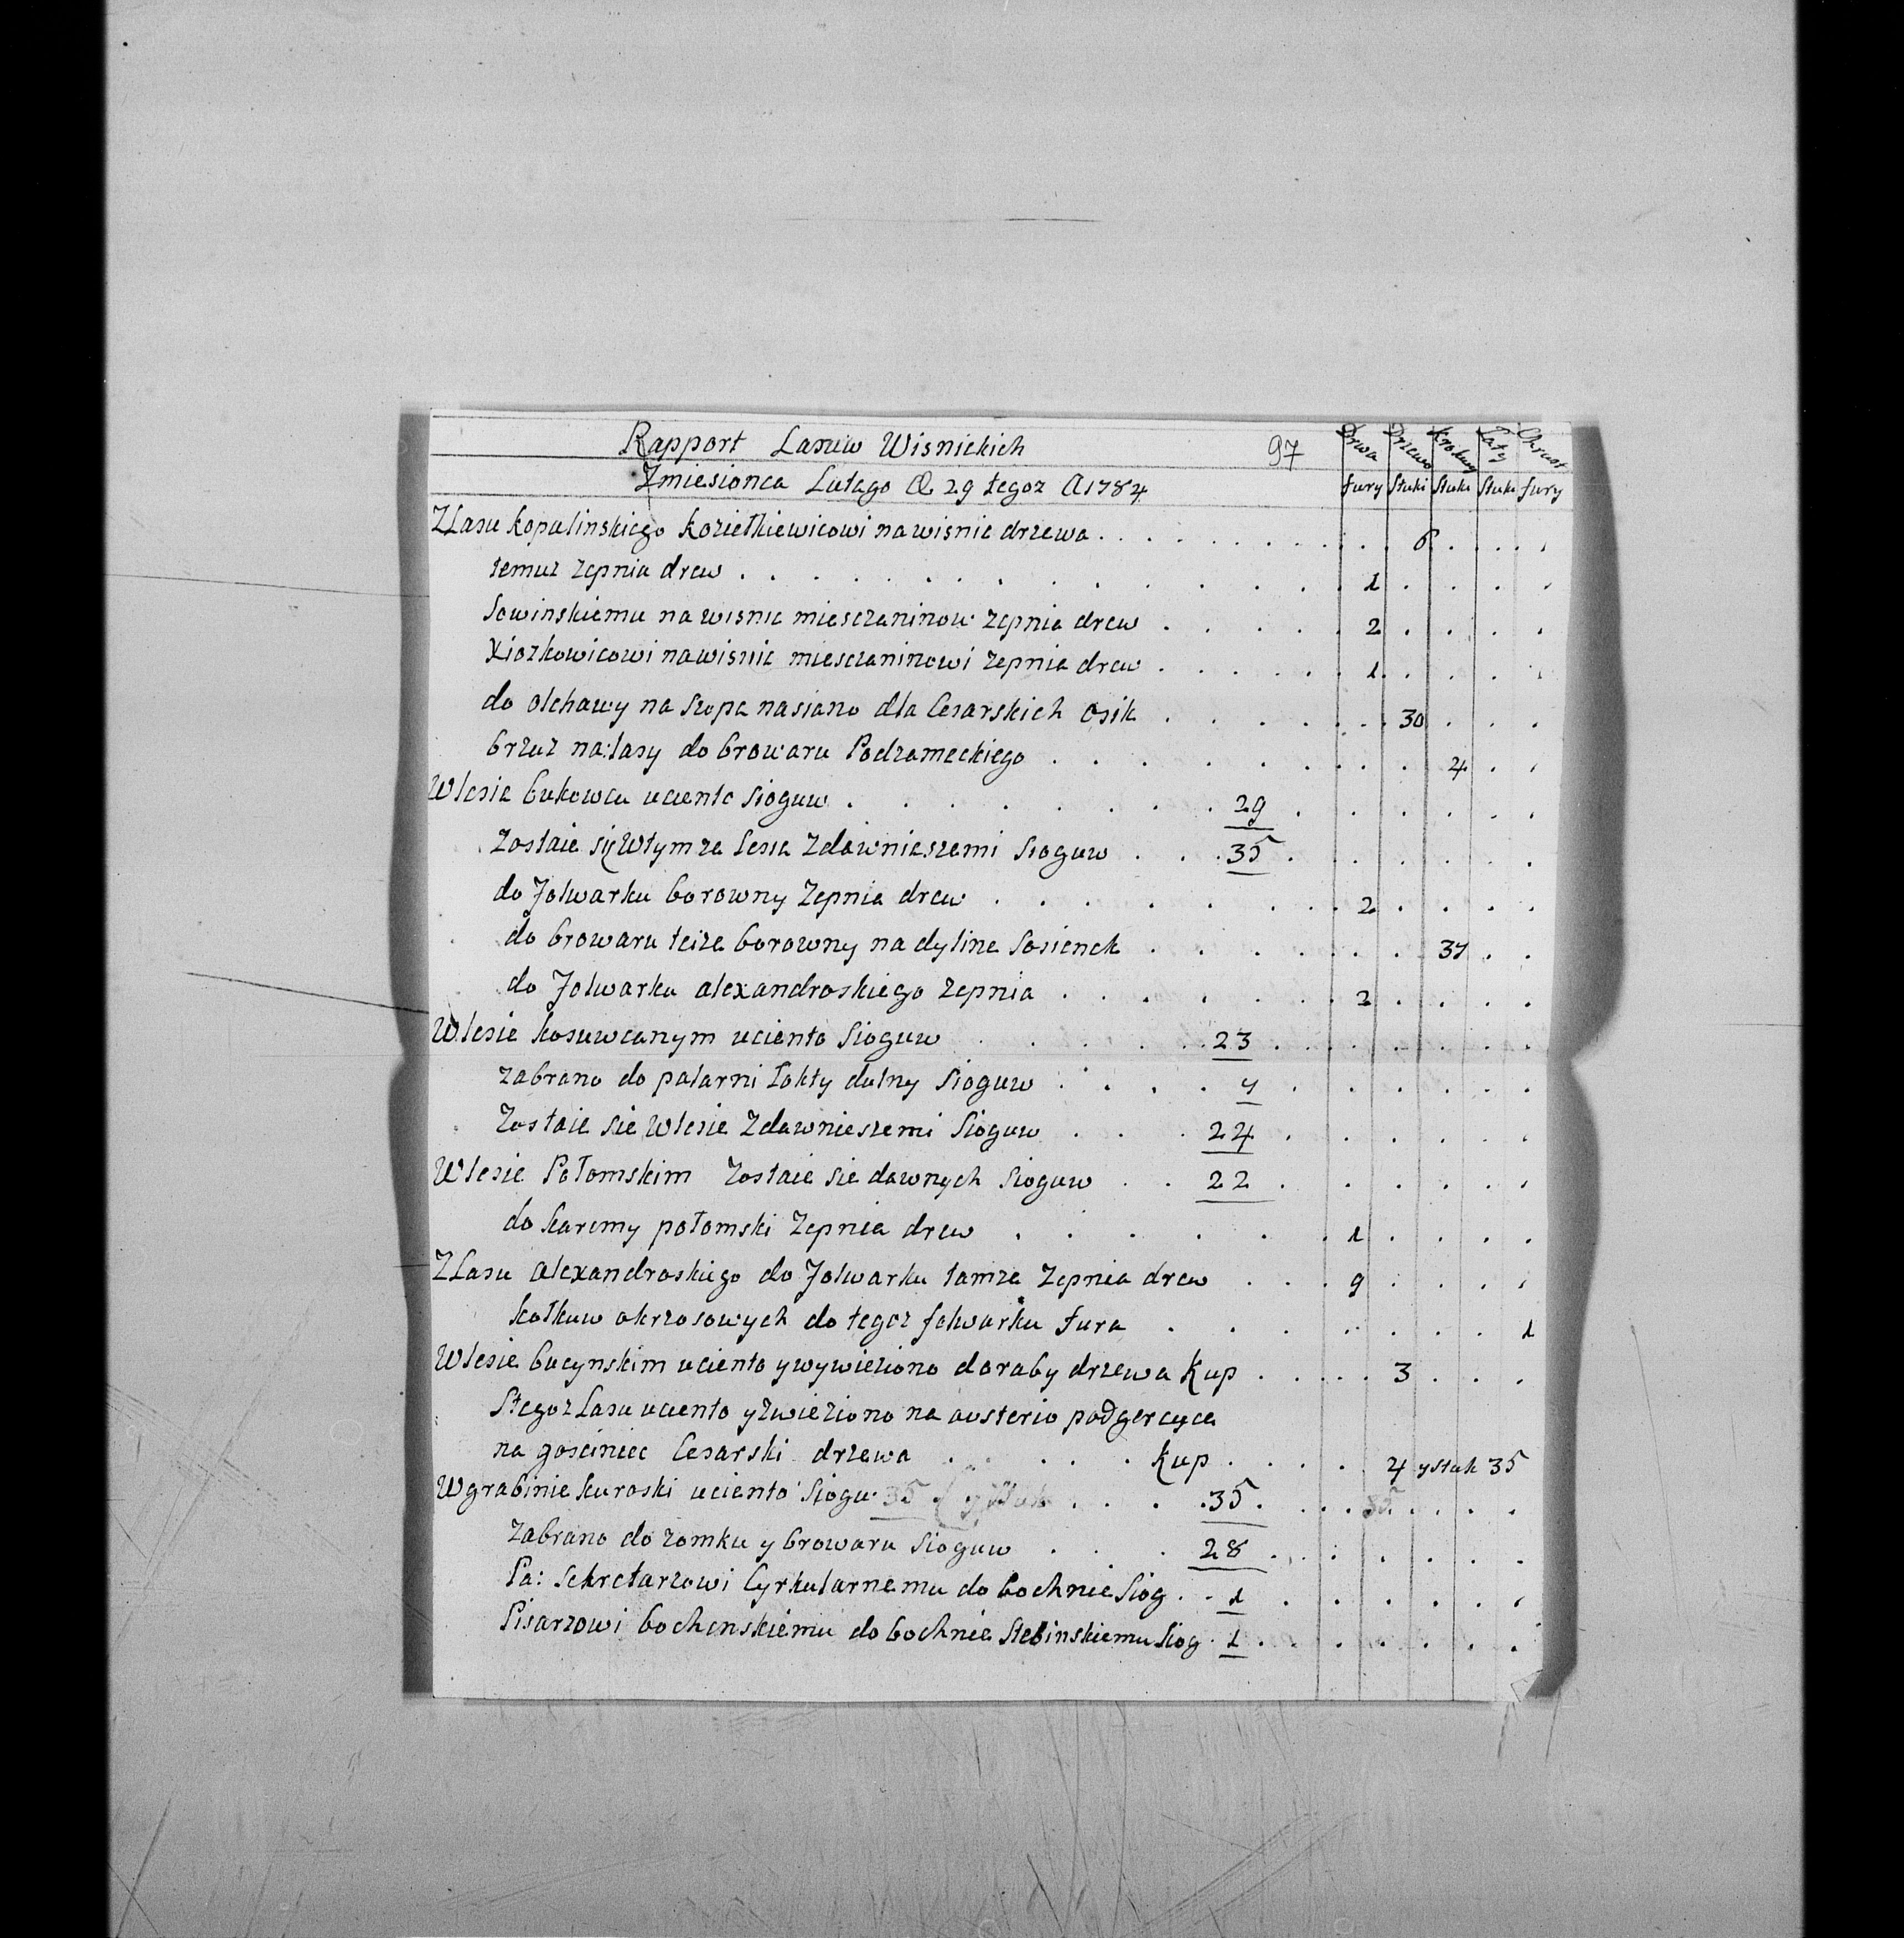 Rapport Lasuw Wisnickich 97 Drwa Drzewo Krokwy Łaty Chrust
Zmiesionca Lutego D 29 tegoz A 1784 fury Stuki Stuki Stuki fury
ZLasu kopalinskiego kozietkiewicowi na wisnic drzewa 6
temuz zepnia drew 1
Sowinskiemu na wisnic miesczaninow: zepnia drew 2
Xiozkowicowi na wisnic miesczaninowi zepnia drew 1
do olchawy na szope na siano dla Cesarskich osik 30
brzuz na: lasy do browaru Podzameckiego 4
Wlesie bukowcu uciento sioguw 29
Zostaie się Wtymze Lesie Zdawnieszemi sioguw 35
do Folwarku borowny Zepnia drew 2
do browaru teize borowny na dyline sosienek 37
do Folwarku alexandroskiego zepnia 2
Wlesie kosuwcanym uciento sioguw 23
zabrano do palarni Łokty dulny sioguw 7
Zostaie sie Wlesie Zdawnieszemi sioguw 24
Wlesie Połomskim Zostaie sie dawnych sioguw 22
do karcmy połomski Zepnia drew 1
ZLasu alexandroskiego do Folwarku tamze Zepnia drew 9
kołkuw okrzosowych do tegoz folwarku fura 1
Wlesie bucynskim uciento y wywieziono do raby drzewa kup 3
Stegoz Lasu uciento y zwieziono na austerio podgercyce
na gosciniec Cesarski drzewa kup 4 y stuk 35
Wgrabinie kuroski uciento siogu: 35 35
zabrano do zomku y browaru sioguw 28
Pa: sekretarzowi Cyrkularnemu do bochnie siog 1
Pisarzowi bochenskiemu do bochnie Stebinskiemu siog 1